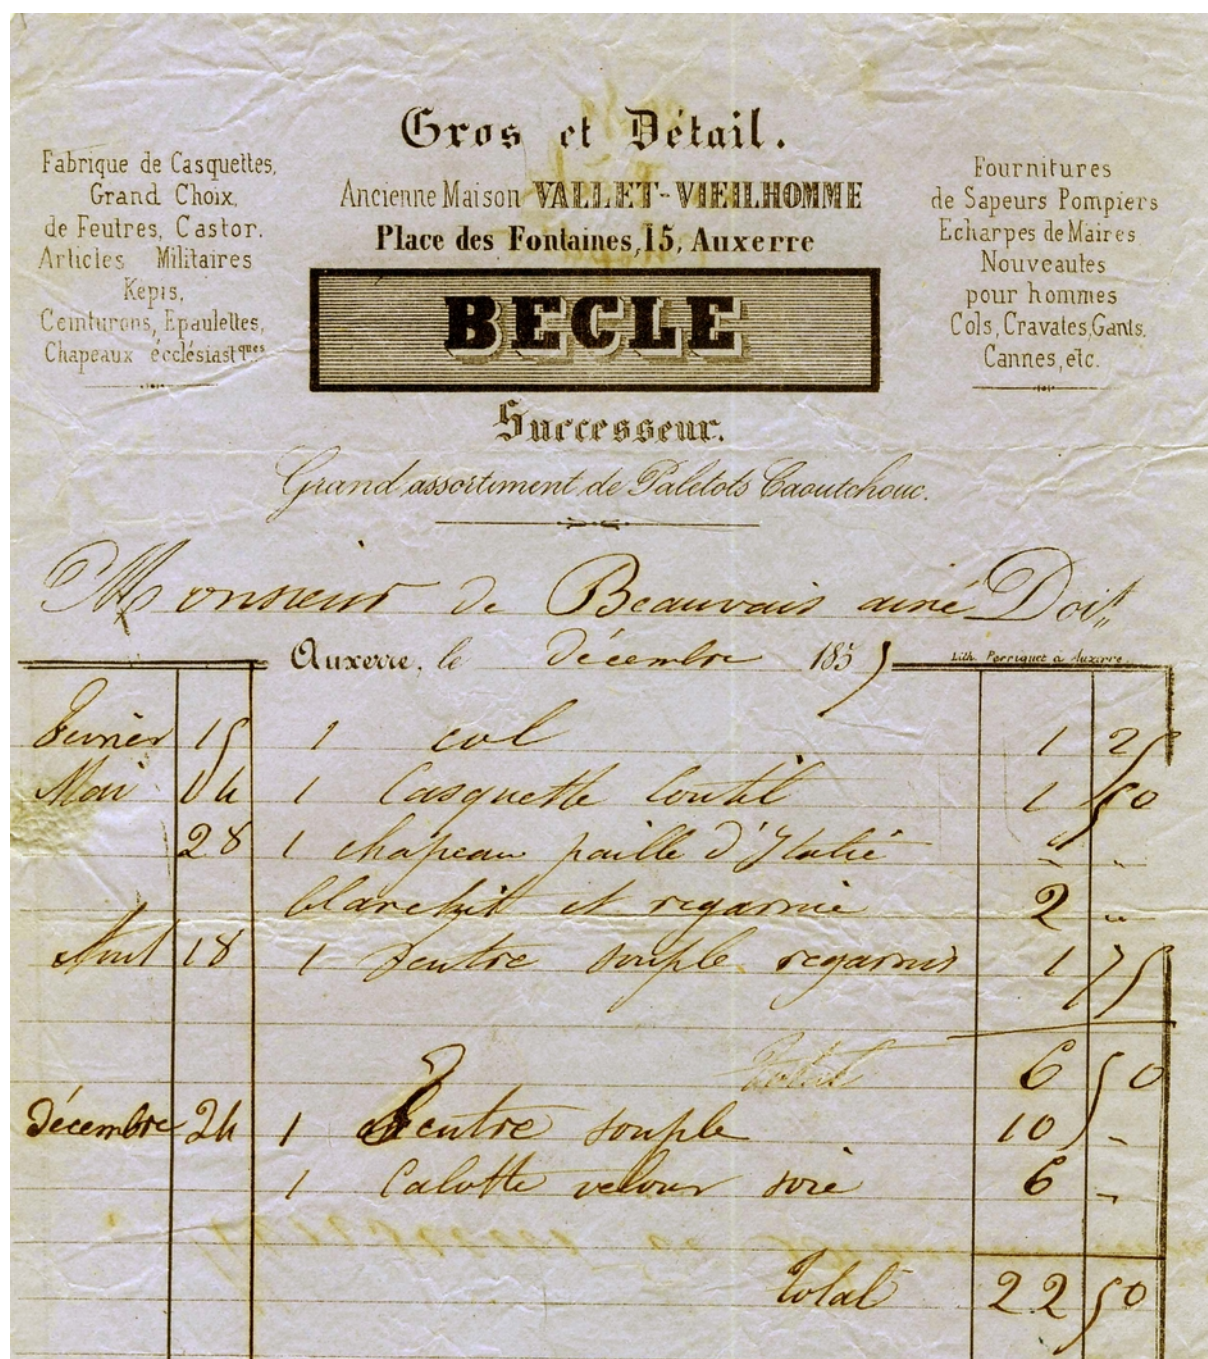 Gros et Détail.
Fabrique de Casquettes,
Grand Choix,
de Feutres, Castor.
Articles Militaires
Képis,
Ceinturons, Epaulettes,
Chapeaux écclésiastques
Ancienne Maison VALLET-VIEILHOMME
Place des Fontaines, 15, Auxerre
BECLE
Successeur.
Grand assortiment de Paletots Caoutchouc.
Fournitures
de Sapeurs Pompiers
Echarpes de Maires
Nouveautes
pour hommes
Cols, Cravates, Gants,
Cannes, etc.
Monsieur de Beauvais ainé Doit"
Auxerre, le décembre 1855
Lith. Perriquet à Auxerre
fevrier 15 1 col 1 25
Mai 14 1 Casquette Coutil 1 50
28 1 chapeau paille d'Italie " "
blanchit et regarnie 2 "
Aout 18 1 feutre souple regarnis 1 75
Total 6 50
Décembre 24 1 feutre souple 10 "
1 Calotte velour soie 6 "
Total 22 50